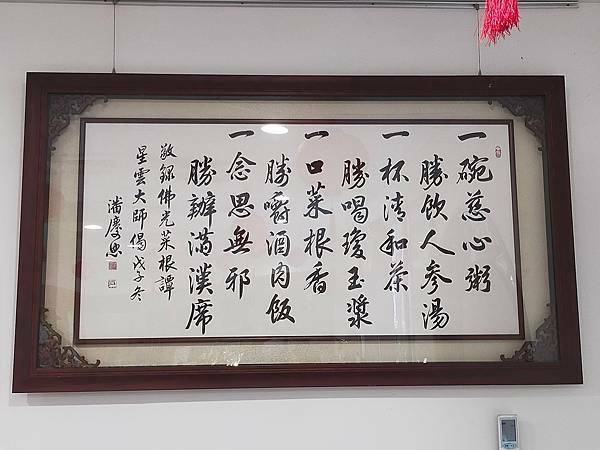 一碗慈心粥
勝飲人參湯
一杯清和茶
勝喝瓊玉漿
一口菜根香
勝嚼酒肉飯
一念思無邪
勝辦滿漢席
敬錄佛光菜根譚
星雲大師偈戊子冬
潘慶忠